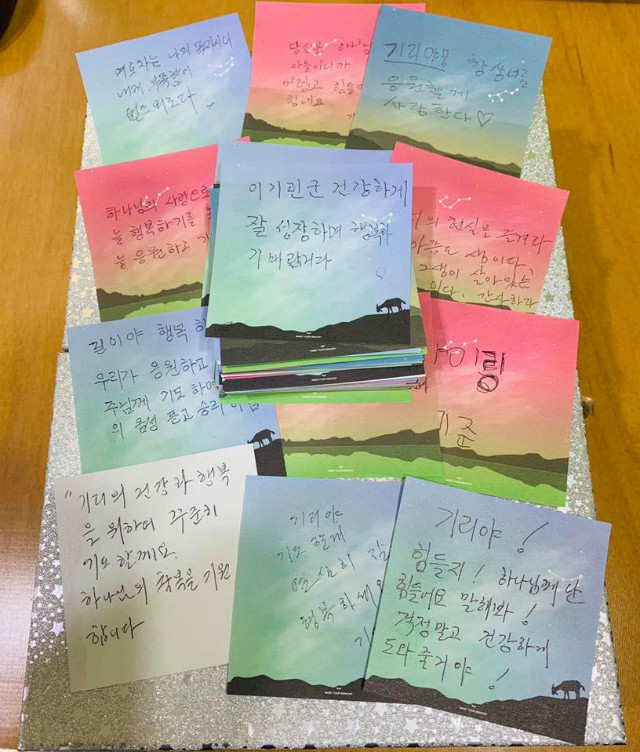 여호와는 나의 목자시니
내게 부족함이
없으리로다
당신은 하나님
아들이니까
어렵고 힘들
힘내요
기리야를 항상 너를
응원할게
사랑한다♡
하나님의 사랑으로
늘 행복하기를
늘 응원하고 기
이기린군 건강하게
잘 성장하며 행복과
기쁨
의 현실은 즐겨라
생이다,
생이 살아있는
이다. 감사하라
길이야 행복 하
우리가 응원하고
주님께 기도 하며
의 음성 듣고 승리
기준
"기리의 건강과 행복
을 위하여 꾸준히
기도 할께요.
하나님의 축복을 기원
합니다
기리야
기도 할게
열심히
행복하세요
기리야!
힘들지! 하나님께 난
힘들어요 말해봐!
걱정말고 건강하게
도와줄거야!